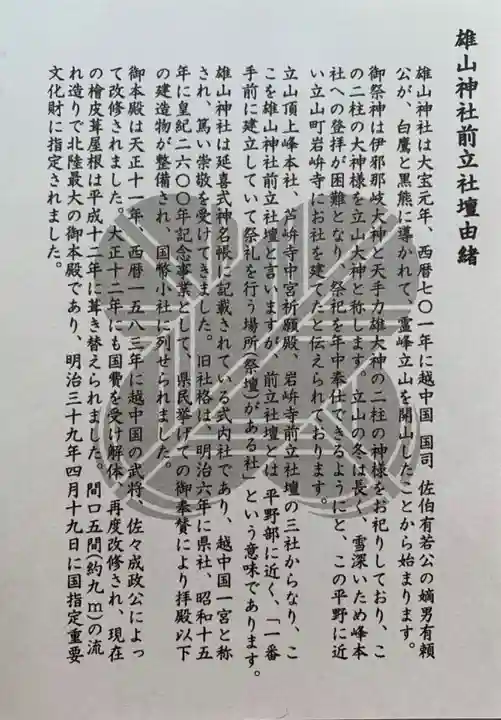 雄山神社前立社壇由緒
雄山神社は大宝元年、西暦七〇一年に越中国 国司 佐伯有若公の嫡男有頼
公が、白鷹と黒熊に導かれて、霊峰立山を開山したことから始まります。
御祭神は伊邪那岐大神と天手力雄大神の二柱の神様をお祀りしており、こ
の二柱の大神様を立山大神と称します。立山の冬は長く、雪深いため峰本
社への登拝が困難となり、祭祀を年中奉仕できるようにと、この平野に近
い立山町岩峅寺にお社を建てたと伝えられております。
立山頂上峰本社、芦峅寺中宮祈願殿、岩峅寺前立社壇の三社からなり、こ
こを雄山神社前立社壇と言いますが、前立社壇とは、平野部に近く、「一番
手前に建立していて祭礼を行う場所(祭壇)がある社」という意味であります。
雄山神社は延喜式神名帳に記載されている式内社であり、越中国一宮と称
され、篤い崇敬を受けてきました。旧社格は、明治六年に県社、昭和十五
年に皇紀二六〇〇年記念事業として、県民挙げての御奉賛により拝殿以下
の建造物が整備され、国幣小社に列せられました。
御本殿は天正十一年、西暦一五八三年に越中国の武将、佐々成政公によっ
て改修されました。大正十二年にも国費を受け解体、再度改修され、現在
の檜皮葺屋根は平成十二年に葺き替えられました。間口五間(約九m)の流
れ造りで北陸最大の御本殿であり、明治三十九年四月十九日に国指定重要
文化財に指定されました。